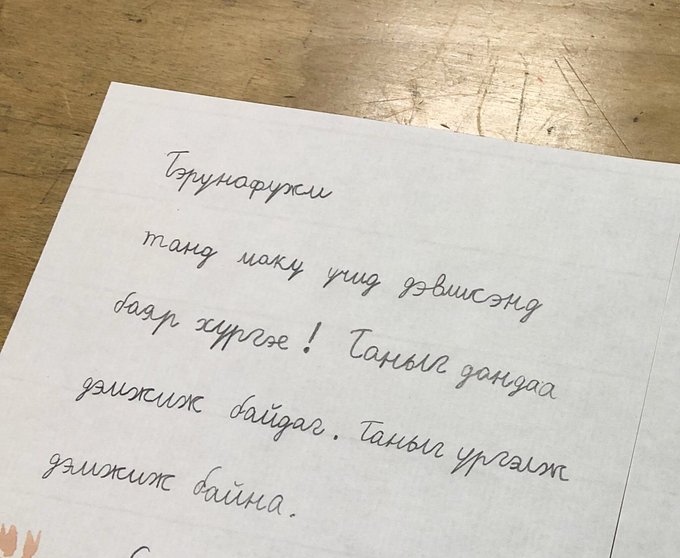 Тэрунафужи
танд маку учид дэвшсэнд
баяр хүргэе! Таныг дандаа
дэмжиж байдаг. Таныг үргэлж
дэмжиж байна.